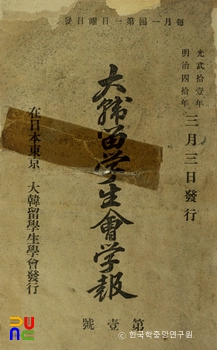 每月一囘第一日曜日發
光武拾壹年
明治四拾年
三月三日發行
大韓留學生會學報
在日本東京 大韓留學生學會發行
第壹號
ⓒ한국학중앙연구원